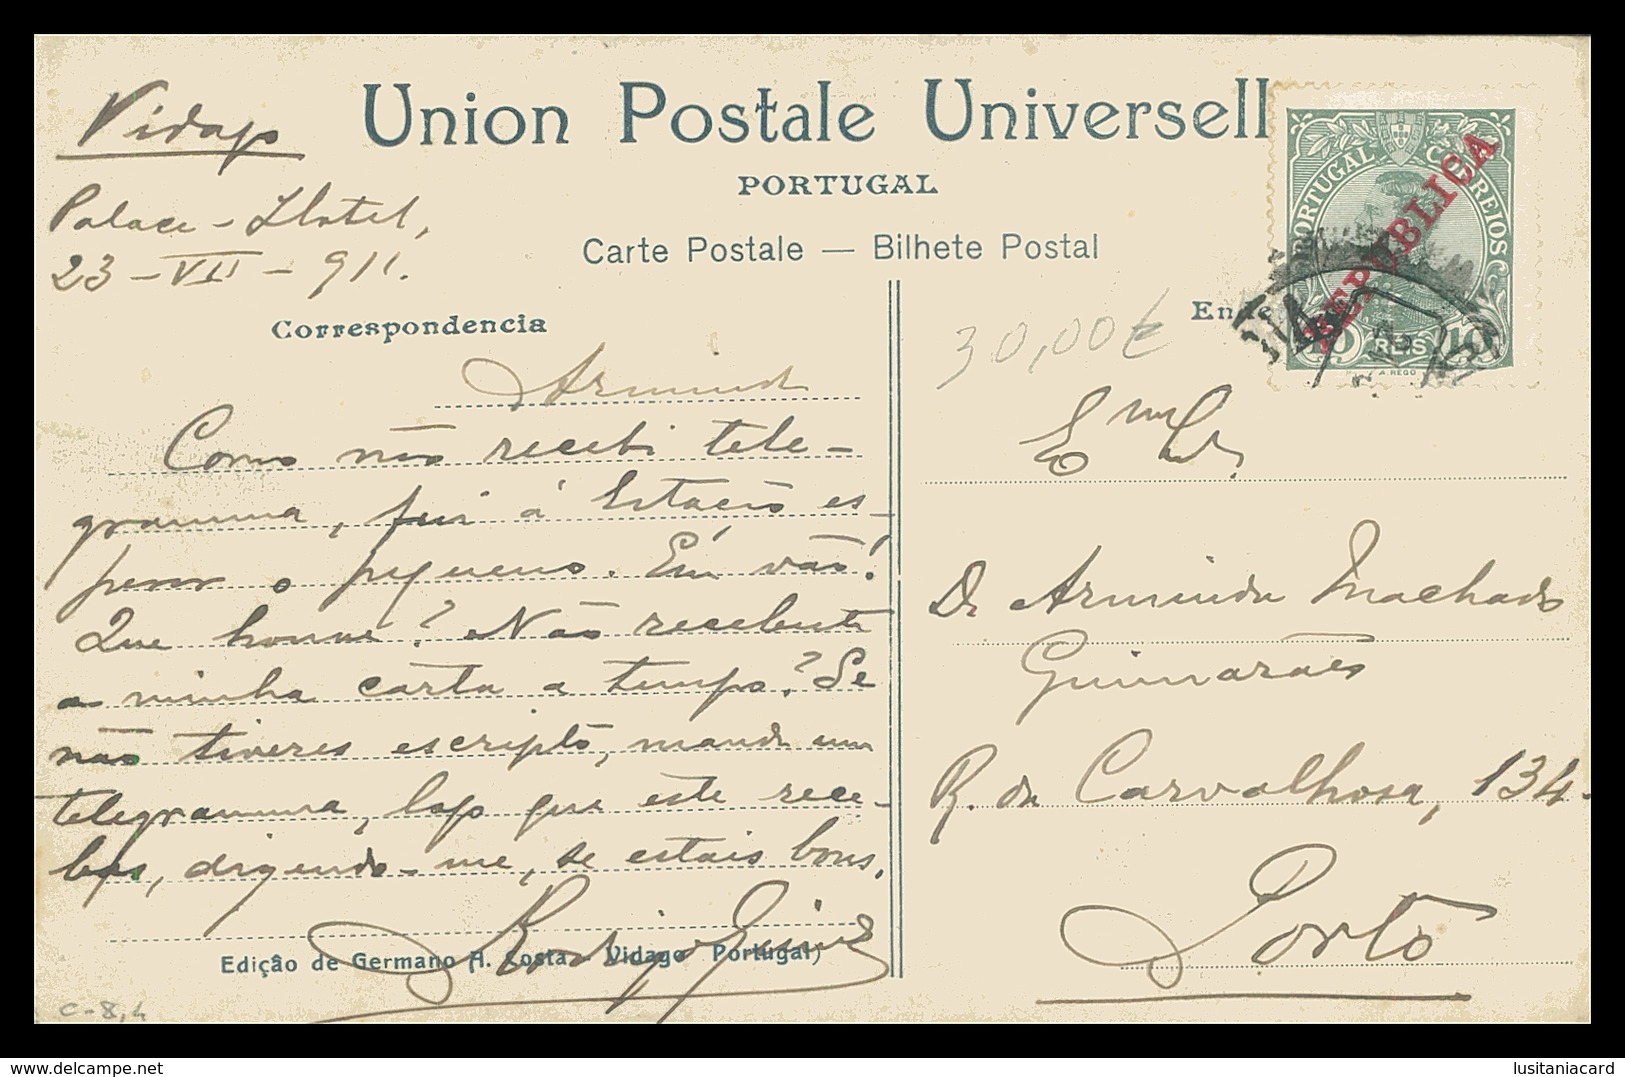 Vidago
Palace-Hotel,
23-VII-911.
Union Postale Universell
PORTUGAL
Carte Postale — Bilhete Postal
Correspondencia
PORTUGAL CORREIOS
REPUBLICA
10 REIS 10
30,00€
Armindo
Como não recebi tele-
gramma, fui á Estação es-
perar o pequeno. Em vão!
Que houve? Não recebeste
a minha carta a tempo? Se
não tiveres escripto, manda um
telegramma, logo que este rece-
bas, dizendo-me, se estais bons.
Edição de Germano A. Costa - Vidago Portugal)
c-8,4
Dr Armindo Machado
Guimarães
R. da Carvalhosa, 134.
Porto
www.delcampe.net
lusitaniacard